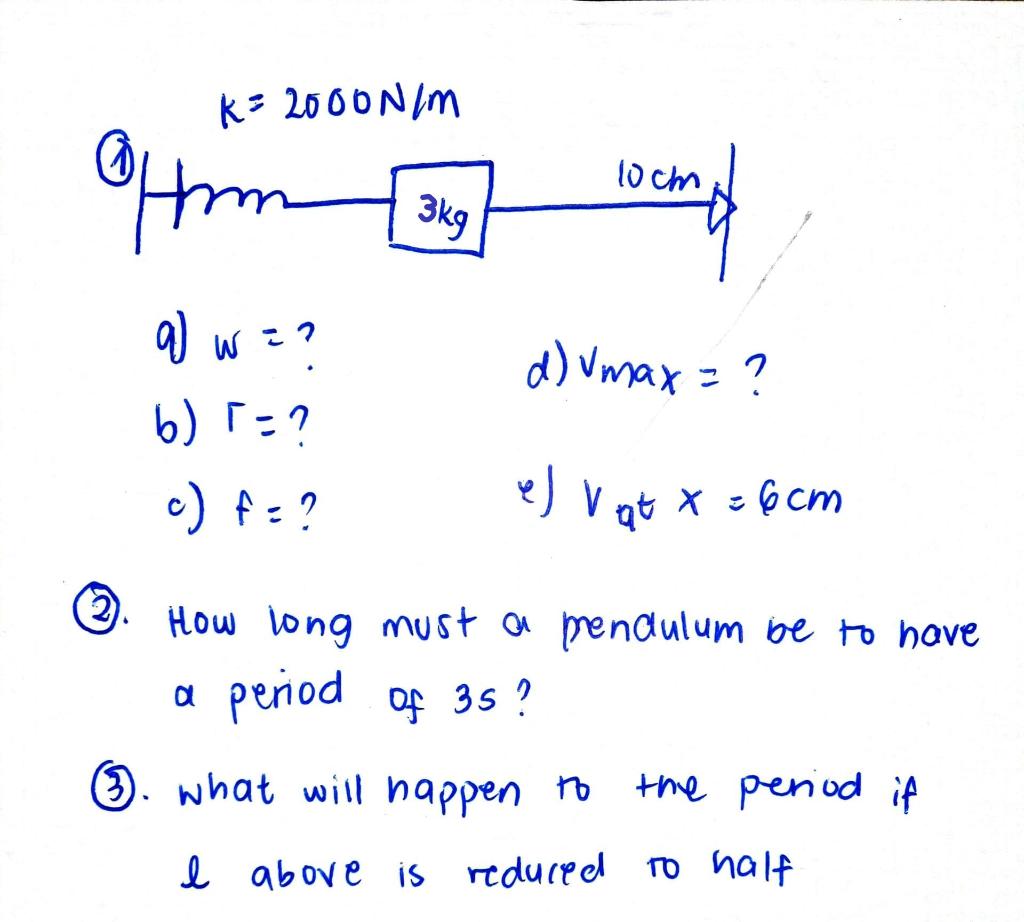 k = 2000 N/m
① 3kg 10 cm
a) w = ?
b) T = ?
c) f = ?
d) Vmax = ?
e) V at x = 6cm
②. How long must a pendulum be to have
a period of 3s ?
③. what will happen to the period if
l above is reduced to half